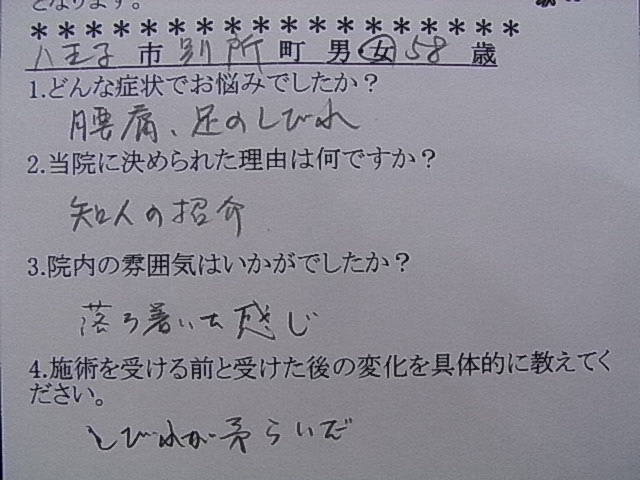 となります。
＊＊＊＊＊＊＊＊＊＊＊＊＊＊＊＊＊＊
八王子市別所町男女58歳
1.どんな症状でお悩みでしたか？
腰痛、足のしびれ
2.当院に決められた理由は何ですか？
知人の招介
3.院内の雰囲気はいかがでしたか？
落ち着いた感じ
4.施術を受ける前と受けた後の変化を具体的に教えてく
ださい。
しびれが和らいだ